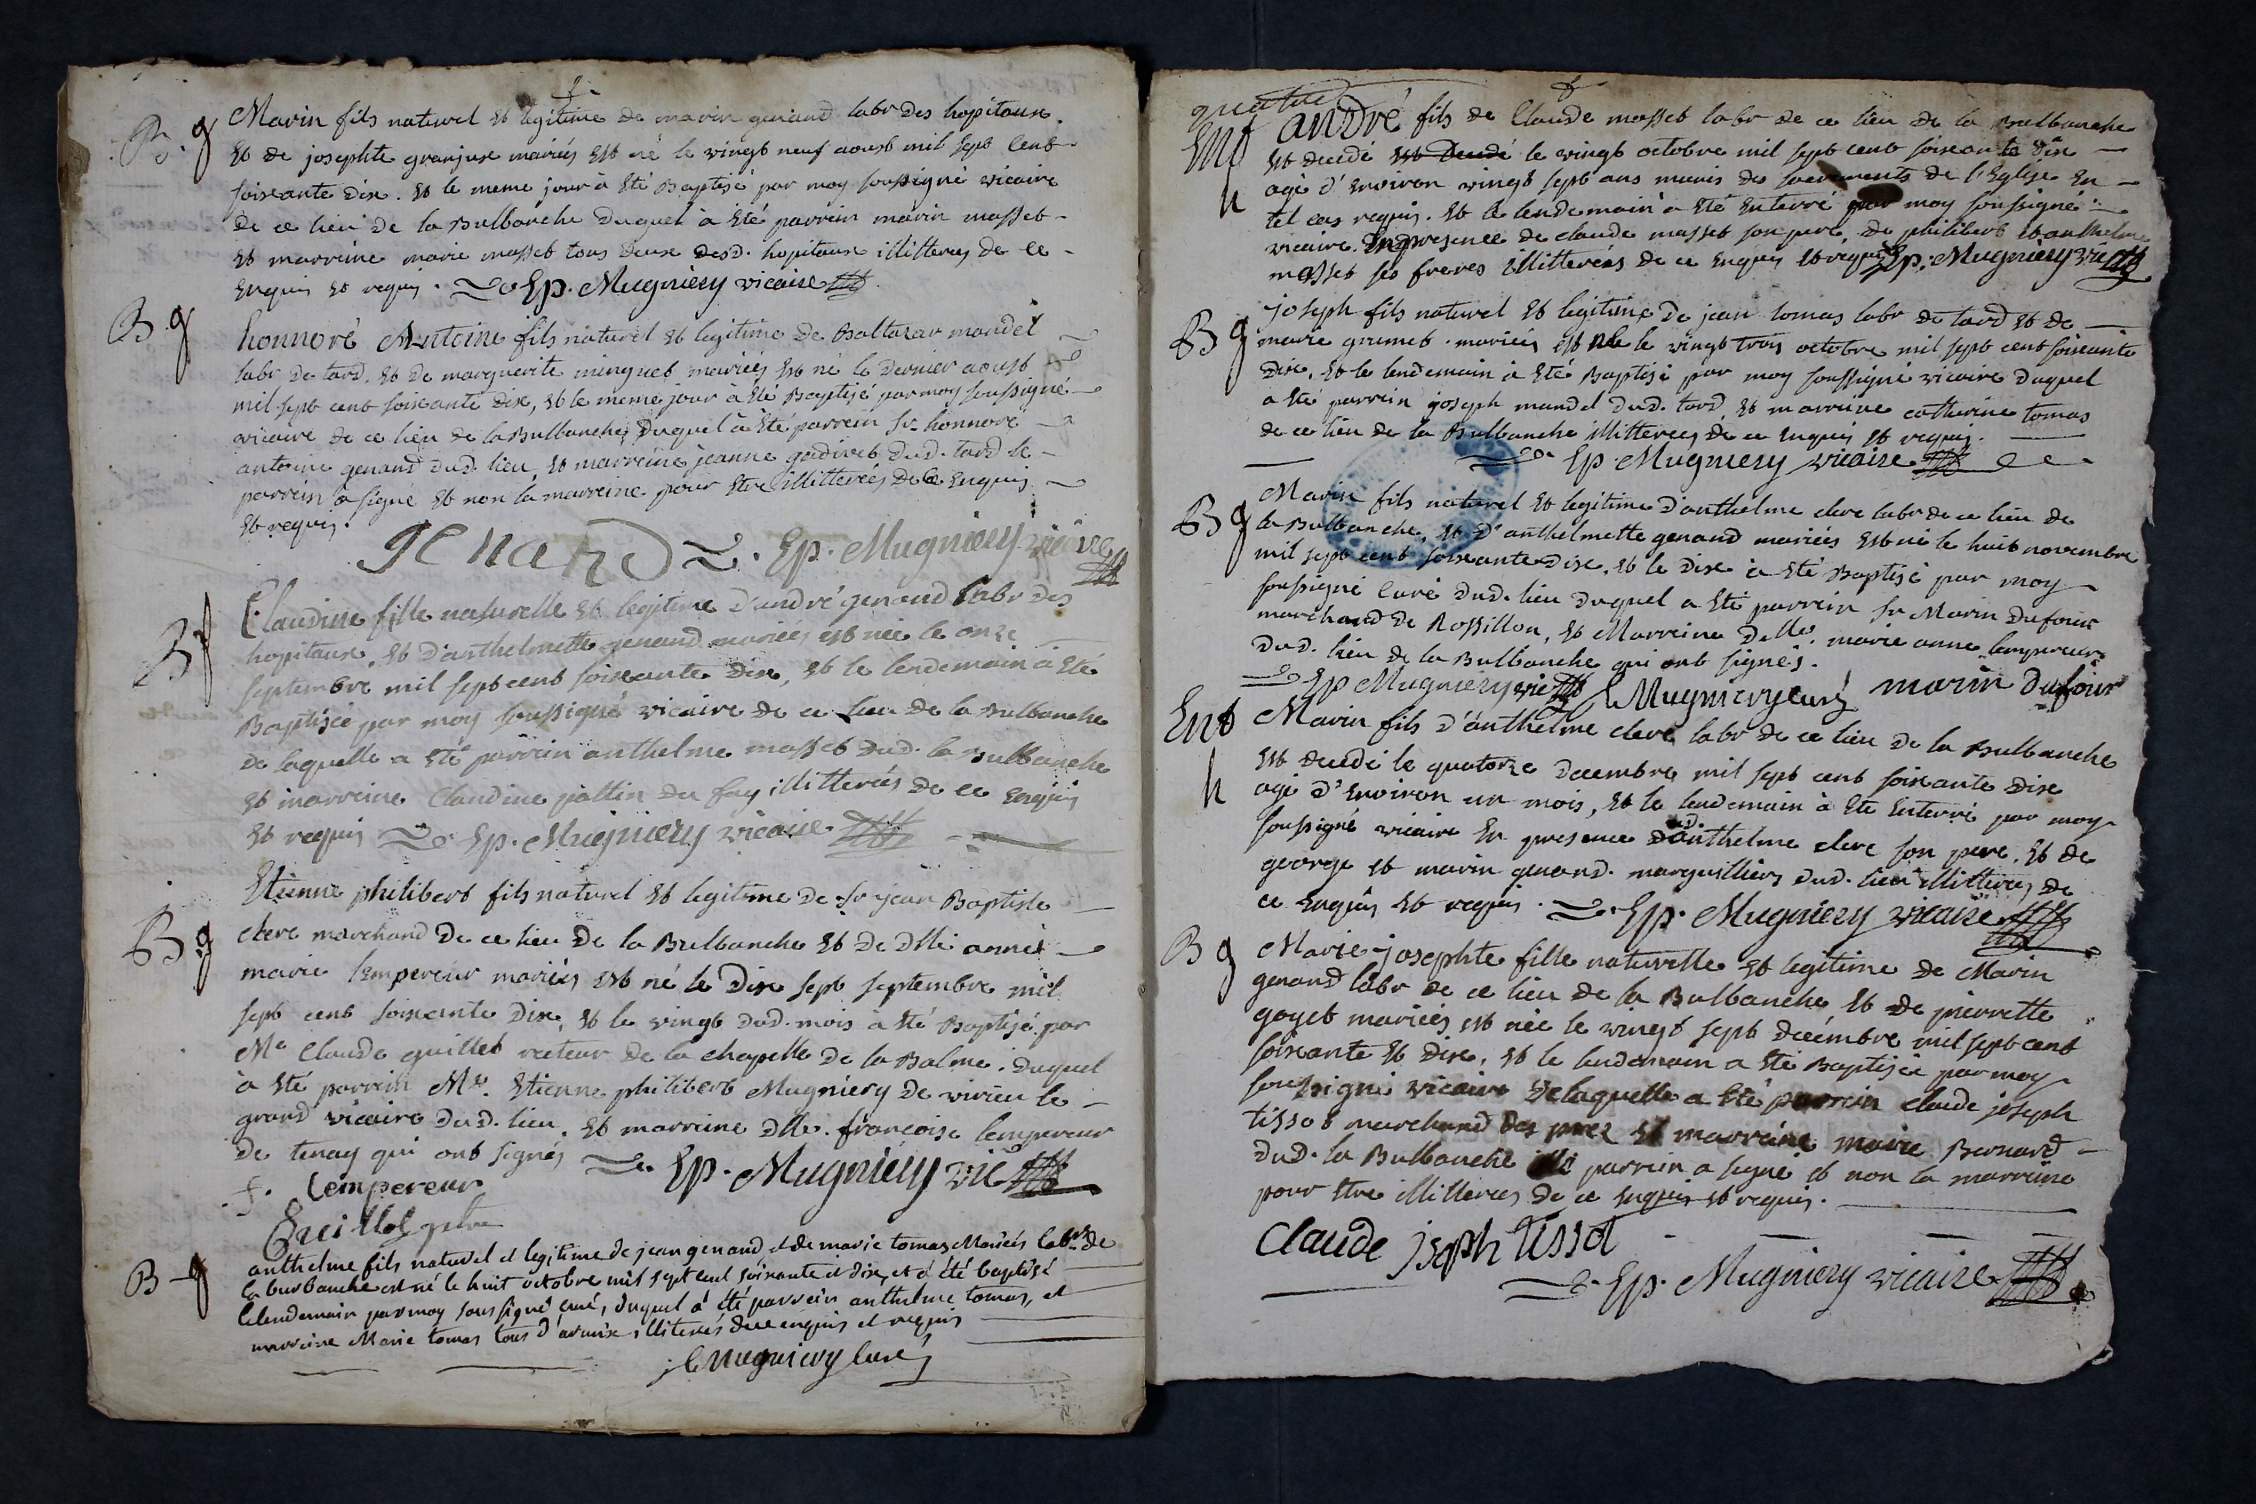 B. g
Marin fils naturel et legitime de marin genand labr des hopitaux.
et de josephte granjux mariés est né le vingt neuf aoust mil sept cent
soixante dix. et le meme jour à été Baptisé par moy soussigné vicaire
de ce lieu de la Bulbanche duquel à été parrein marin masset
et marreine marie masset tous deux desd. hopitaux illitterés de ce
enquis et requis. Ep. Mugniery vicaire
B. g
honnoré Antoine fils naturel et legitime de Baltazar mandel
labr de tard, et de marguerite minguet mariés est né le dernier aoust
mil sept cent soixante dix, et le meme jour à été Baptisé par moy soussigné
vicaire de ce lieu de la Bulbanche, duquel à été parrein Sr honnoré
antoine genand dud. lieu, et marreine jeanne gadivet dud. tard le
parrein a signé et non la marreine pour etre illitterés de ce enquis
et requis.
Genand Ep. Mugniery vicaire
B f
Claudine fille naturelle et legitime d'andré genand labr des
hopitaux, et d'anthelmette genand mariés est née le onze
septembre mil sept cent soixante dix, et le lendemain à été
Baptisée par moy soussigné vicaire de ce lieu de la Bulbanche
de laquelle a été parrein anthelme masset dud. la Bulbanche
et marreine Claudine pattin du fay illitterés de ce enquis
et requis Ep. Mugniery vicaire
B g
Etienne philibert fils naturel et legitime de Sr jean Baptiste
clerc marchand de ce lieu de la Bulbanche et de dlle anne
marie Lempereur mariés est né le dix sept septembre mil
sept cent soixante dix, et le vingt dud. mois à été Baptisé par
Me Claude guillot recteur de la chapelle de la Balme. duquel
à été parrein Me. Etienne philibert Mugniery de virieu le
grand vicaire dud. lieu, et marreine dlle. françoise Lempereur
de tenay qui ont signés Ep. Mugniery vic
f. Lempereur
Guillot ptre
B g
anthelme fils naturel et legitime de jean genand et de marie tomas Mariés labrs de
la burbanche est né le huit octobre mil sept cent soixante et dix, et a été baptisé
le lendemain par moy soussigné curé, duquel a été parrein anthelme tomas, et
marreine Marie tomas tous d'armix illiterés de ce enquis et requis
Mugniery curé
quatre
Ent
h
André fils de Claude masset labr de ce lieu de la Bulbanche
est decedé est decedé le vingt octobre mil sept cent soixante dix
agé d'environ vingt sept ans munis des sacrements de l'Eglise en
tel cas requis. et le lendemain a été enterré par moy soussigné
vicaire. En presence de claude masset son pere, de philibert et anthelme
masset ses freres illitterés de ce enquis et requis Ep. Mugniery vic
B g
joseph fils naturel et legitime de jean tomas labr de tard et de
marie grumet. mariés est né le vingt trois octobre mil sept cent soixante
dix, et le lendemain à été Baptisé par moy soussigné vicaire duquel
a été parrein joseph mandel dud. tard et marreine catherine tomas
de ce lieu de la Bulbanche illitterés de ce enquis et requis.
Ep. Mugniery vicaire
B g
Marin fils naturel et legitime d'anthelme clerc labr de ce lieu de
la Bulbanche, et d'anthelmette genand mariés est né le huit novembre
mil sept cent soixante dix, et le dix à été Baptisé par moy
soussigné Curé dud. lieu duquel a été parrein Sr Marin Dufour
marchand de Rossillon, et Marreine dlle. marie anne Lempereur
dud. lieu de la Bulbanche qui ont signés.
Ep Mugniery vic Mugniery curé marin dufour
Ent
h
Marin fils d'anthelme clerc labr de ce lieu de la Bulbanche
est decedé le quatorze decembre mil sept cent soixante dix
agé d'environ un mois, et le lendemain à été enterré par moy
soussigné vicaire en presence dud. anthelme clerc son pere, et de
george et marin genand. marguilliers dud. lieu illitterés de
ce enquis et requis. Ep. Mugniery vicaire
B g
Marie-josephte fille naturelle et legitime de Marin
genand labr de ce lieu de la Bulbanche, et de pierrette
goyet mariés est née le vingt sept decembre mil sept cent
soixante et dix, et le lendemain a été Baptisée par moy
soussigné vicaire de laquelle a été parrein claude joseph
tissot marchand des prez et marreine marie Bernard
dud. la Bulbanche parrein a signé et non la marreine
pour etre illitterés de ce enquis et requis.
Claude joseph tissot
Ep. Mugniery vicaire